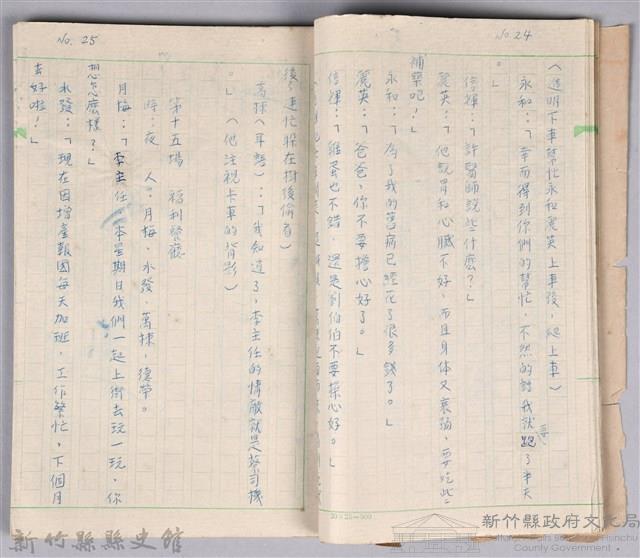 No. 24
(透明下車幫忙永和麗英上車後,爬上車)
永和:「幸而得到你們的幫忙,不然的話我就要跑了半天
。」
信輝:「許醫師說些什麼?」
麗英:「他說胃和心臟不好,而且身体又衰弱,要吃些
補藥吧!」
永和:「為了我的舊病已經花了很多錢了。」
麗英:「爸爸,你不要擔心好了。」
信輝:「雞蛋也不錯,還是劉伯伯不要操心好。」
No. 25
後,連忙躲在樹後偷看)
萬採(耳語):「我知道了,李主任的情敵就是蔡司機
。」(他注視卡車的背影)
第十五場 福利餐廳
時:夜 人:月梅、水發、萬採、德榮。
月梅:「李主任,本星期日我們一起上街去玩一玩,你
想怎麼樣?」
水發:「現在因增產報國每天加班,工作繁忙,下個月
去好啦!」
20×25=500
新竹縣縣史館
新竹縣政府文化局
Cultural Affairs Bureau of Hsinchu
County Government